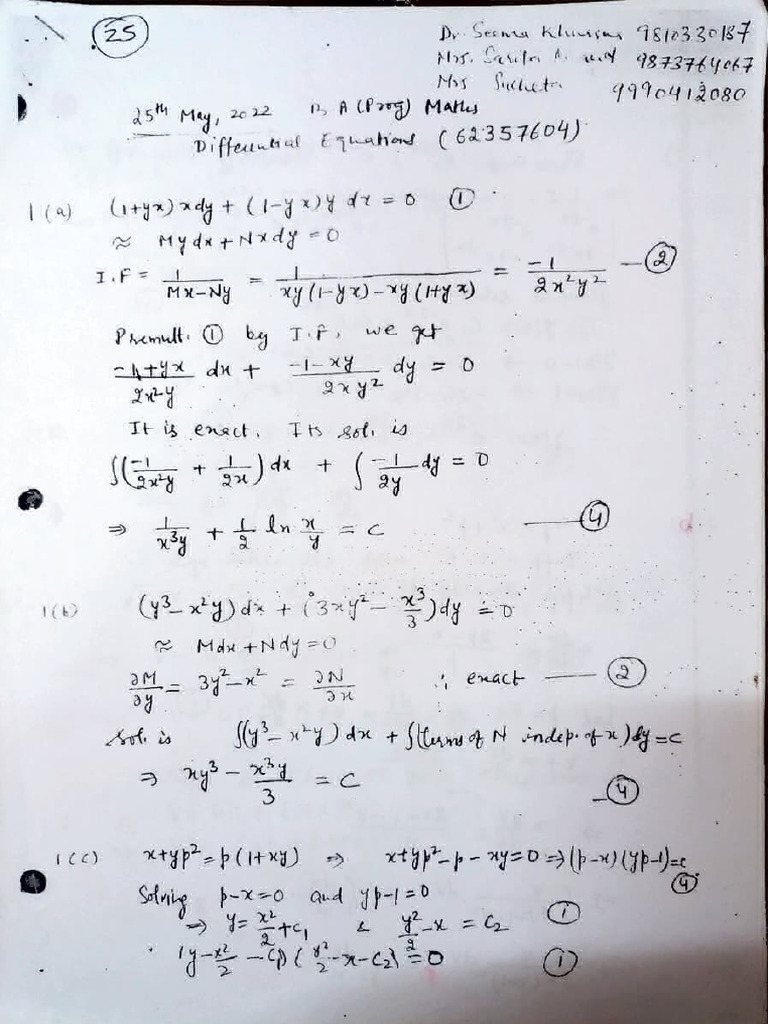 25
Dr. Seema 9810330187
Mrs. Sarita 9873764067
Mrs Sucheta 9990412080
25th May, 2022 B A (Prog) Maths
Differential Equations (62357604)
1(a) (1+yx)xdy + (1-yx)y dx = 0 ①
≈ Mydx + Nxdy = 0
I.F = 1/(Mx-Ny) = 1/(xy(1-yx)-xy(1+yx)) = -1/(2x²y²) — ②
Premult. ① by I.F, we get
(-1+yx)/(2x²y) dx + (-1-xy)/(2xy²) dy = 0
It is exact. Its sol. is
∫(-1/(2x²y) + 1/(2x)) dx + ∫ -1/(2y) dy = 0
⇒ 1/(x³y) + 1/2 ln x/y = c — ④
1(b) (y³-x²y)dx + (3xy² - x³/3)dy = 0
≈ Mdx + Ndy = 0
∂M/∂y = 3y²-x² = ∂N/∂x ∴ exact — ②
Sol. is ∫(y³-x²y) dx + ∫(terms of N indep. of x) dy = c
⇒ xy³ - x³y/3 = c — ④
1(c) x+yp² = p(1+xy) ⇒ x+yp²-p-xy=0 ⇒ (p-x)(yp-1)=c
④
Solving p-x=0 and yp-1=0
⇒ y = x²/2 + c₁ & y²/2 - x = c₂ ①
(y-x²/2 - c₁)(y²/2 - x - c₂) = 0 ①